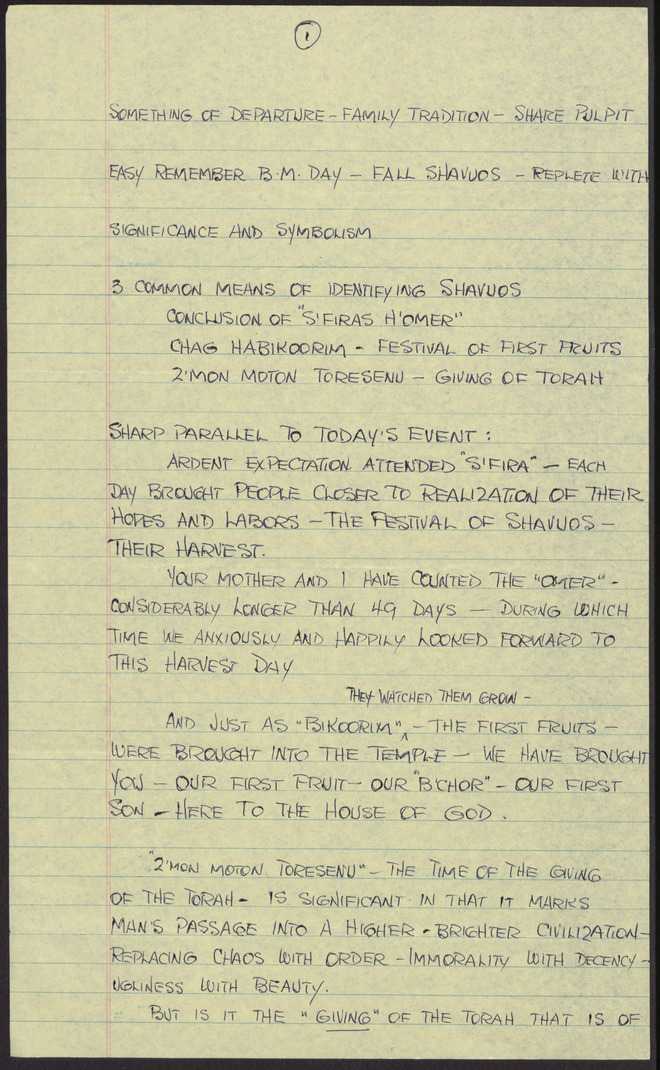 1
SOMETHING OF DEPARTURE - FAMILY TRADITION - SHARE PULPIT
EASY REMEMBER B.M. DAY - FALL SHAVUOS - REPLETE WITH
SIGNIFICANCE AND SYMBOLISM
3 COMMON MEANS OF IDENTIFYING SHAVUOS
CONCLUSION OF "S'FIRAS H'OMER"
CHAG HABIKOORIM - FESTIVAL OF FIRST FRUITS
Z'MON MOTON TORESENU - GIVING OF TORAH
SHARP PARALLEL TO TODAY'S EVENT :
ARDENT EXPECTATION ATTENDED "S'FIRA" - EACH
DAY BROUGHT PEOPLE CLOSER TO REALIZATION OF THEIR
HOPES AND LABORS - THE FESTIVAL OF SHAVUOS -
THEIR HARVEST.
YOUR MOTHER AND I HAVE COUNTED THE "OMER" -
CONSIDERABLY LONGER THAN 49 DAYS - DURING WHICH
TIME WE ANXIOUSLY AND HAPPILY LOOKED FORWARD TO
THIS HARVEST DAY
THEY WATCHED THEM GROW -
AND JUST AS "BIKOORIM" - THE FIRST FRUITS -
WERE BROUGHT INTO THE TEMPLE - WE HAVE BROUGHT
YOU - OUR FIRST FRUIT - OUR "B'CHOR" - OUR FIRST
SON - HERE TO THE HOUSE OF GOD.
"Z'MON MOTON TORESENU" - THE TIME OF THE GIVING
OF THE TORAH - IS SIGNIFICANT IN THAT IT MARKS
MAN'S PASSAGE INTO A HIGHER - BRIGHTER CIVILIZATION -
REPLACING CHAOS WITH ORDER - IMMORALITY WITH DECENCY -
UGLINESS WITH BEAUTY.
BUT IS IT THE "GIVING" OF THE TORAH THAT IS OF